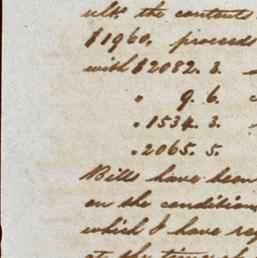 ulto the contents
$1960, proceeds
with $2082. 3.
" 9. 6.
" 1534. 3.
" 2065. 5.
Bills have been
on the condition
which I have
at the time